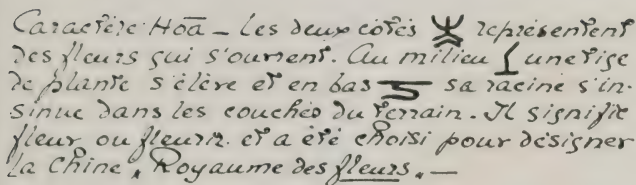 Caractère Hoā – Les deux côtés représentent
des fleurs qui s'ouvrent. Au milieu une tige
de plante s'élève et en bas sa racine s'in-
sinue dans les couches du terrain. Il signifie
fleur ou fleurir et a été choisi pour désigner
la Chine, Royaume des fleurs. —